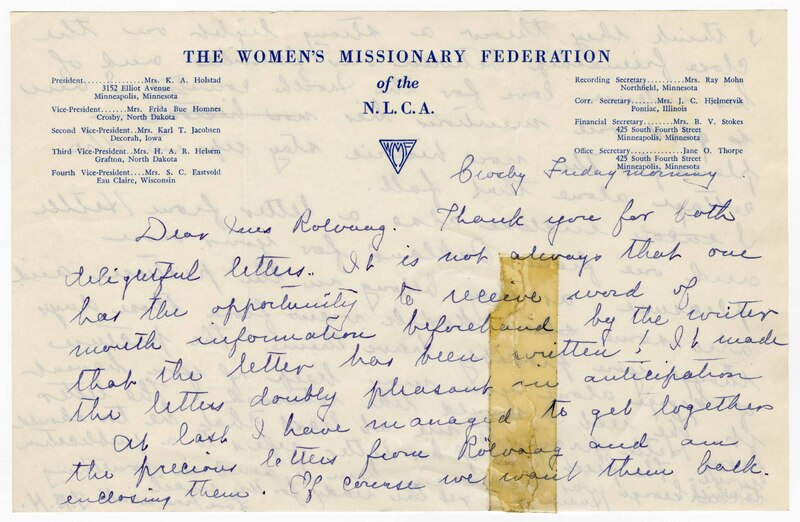 THE WOMEN'S MISSIONARY FEDERATION
of the
N.L.C.A.
President...............Mrs. K. A. Holstad
3152 Elliot Avenue
Minneapolis, Minnesota
Vice-President......Mrs. Frida Bue Homnes
Crosby, North Dakota
Second Vice-President..Mrs. Karl T. Jacobsen
Decorah, Iowa
Third Vice-President..Mrs. H. A. R. Helsem
Grafton, North Dakota
Fourth Vice-President..Mrs. S. C. Eastvold
Eau Claire, Wisconsin
Recording Secretary........Mrs. Ray Mohn
Northfield, Minnesota
Corr. Secretary......Mrs. J. C. Hjelmervik
Pontiac, Illinois
Financial Secretary......Mrs. B. V. Stokes
425 South Fourth Street
Minneapolis, Minnesota
Office Secretary...........Jane O. Thorpe
425 South Fourth Street
Minneapolis, Minnesota
WMF
Crosby Friday morning.
Dear Mrs Rölvaag. Thank you for both
delightful letters. It is not always that one
has the opportunity to receive word of
mouth information beforehand by the writer
that the letter has been written! It made
the letters doubly pleasant in anticipation
At last I have managed to get together
the precious letters from Rölvaag and am
enclosing them. Of course we want them back.